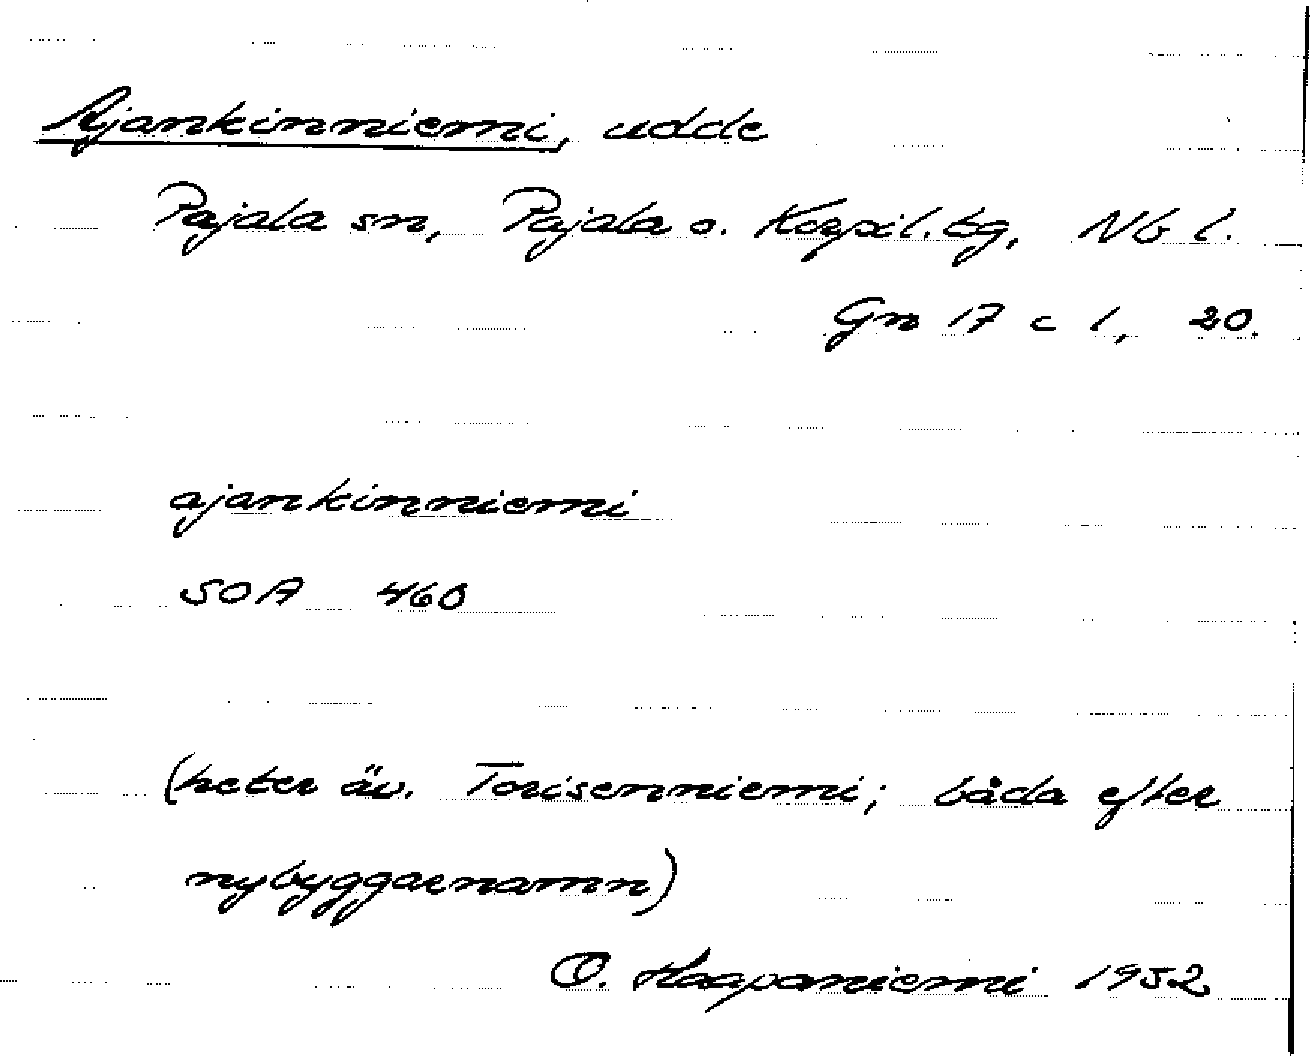 Ajankinniemi, udde
Pajala sn, Pajala o. Korpil. tg, Nb l.
Gn 17 c 1, 20.
ajankinniemi
SOA 460
(heter äv. Torisenniemi; båda efter
nybyggarnamn)
O. Haapaniemi 1952